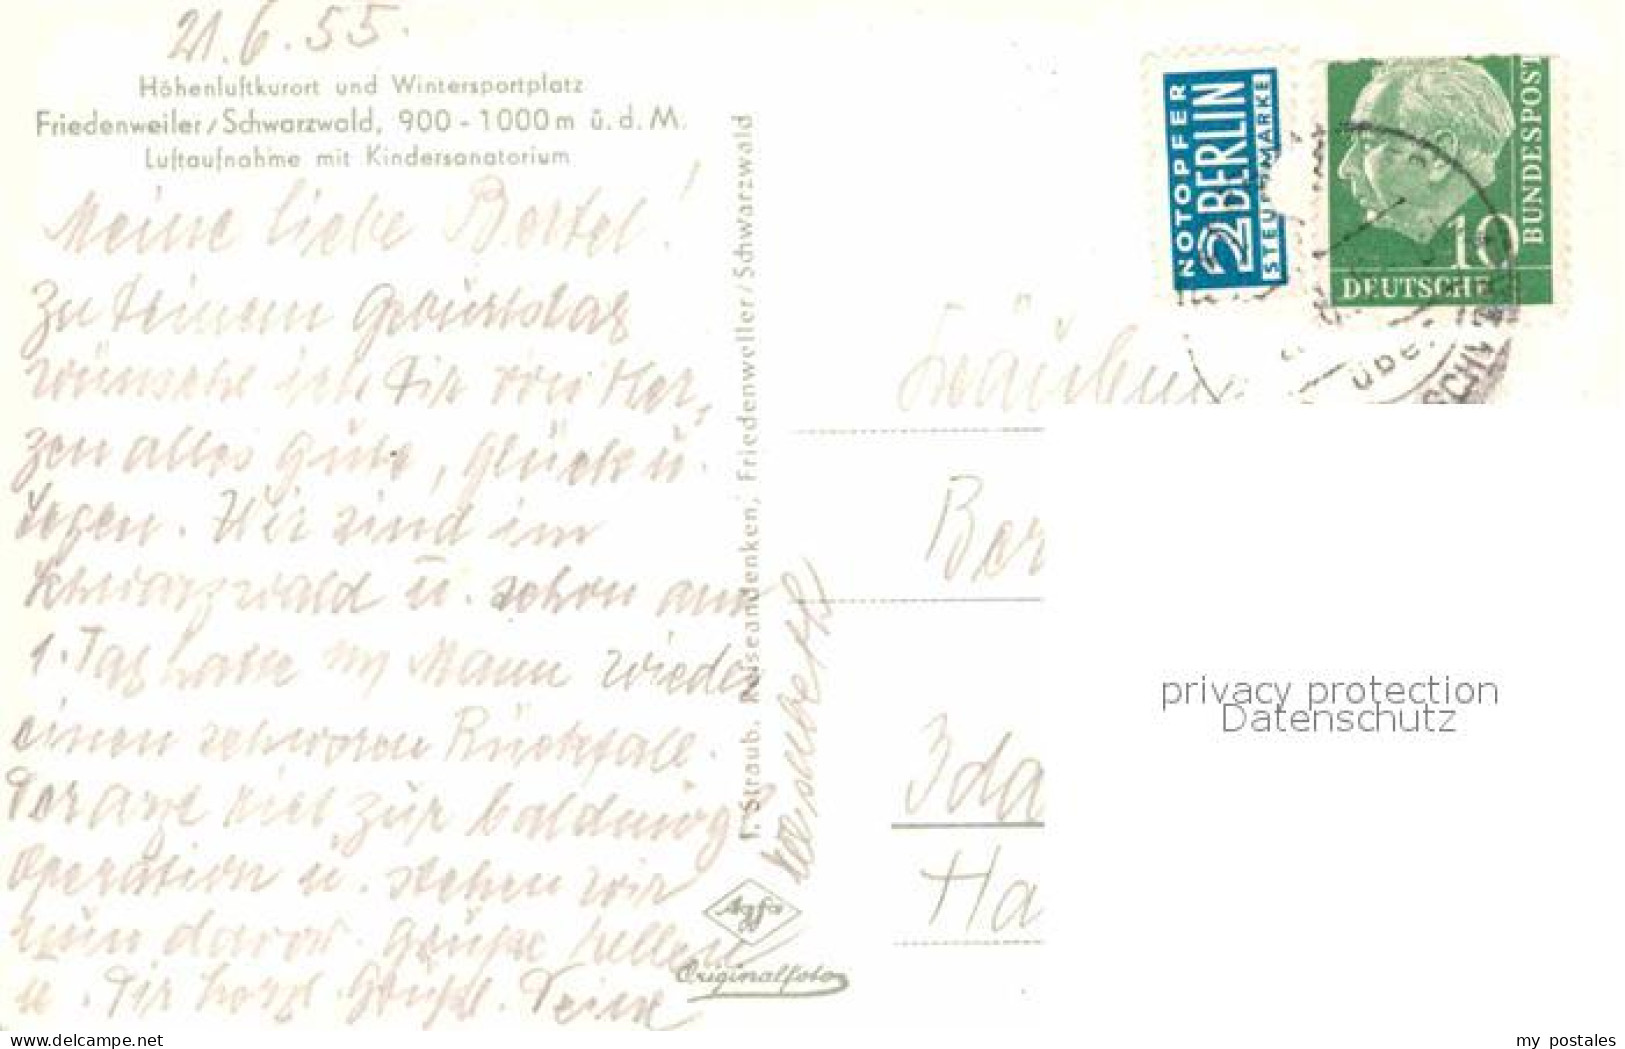 21.6.55.
Höhenluftkurort und Wintersportplatz
Friedenweiler/Schwarzwald, 900 - 1000 m ü. d. M.
Luftaufnahme mit Kindersanatorium
Meine liebe Bertel!
Zu Deinem Geburtstag
wünsche ich Dir von Her-
zen alles Gute, Glück u.
Segen. Wir sind im
Schwarzwald u. schon am
1. Tag hatte my Mann wieder
einen schweren Rückfall.
Der Arzt riet zur baldmög
Operation u. stehen wir
nun davor. Grüße
u. Dir herzl. Grüße. Deine
Elisabeth
F. Straub, Reiseandenken, Friedenweiler/Schwarzwald
Agfa
Originalfoto
NOTOPFER
2 BERLIN
STEUERMARKE
DEUTSCHE
BUNDESPOST
10
über
Fräulein
Ber
Ida
Ha
privacy protection
Datenschutz
www.delcampe.net
my postales